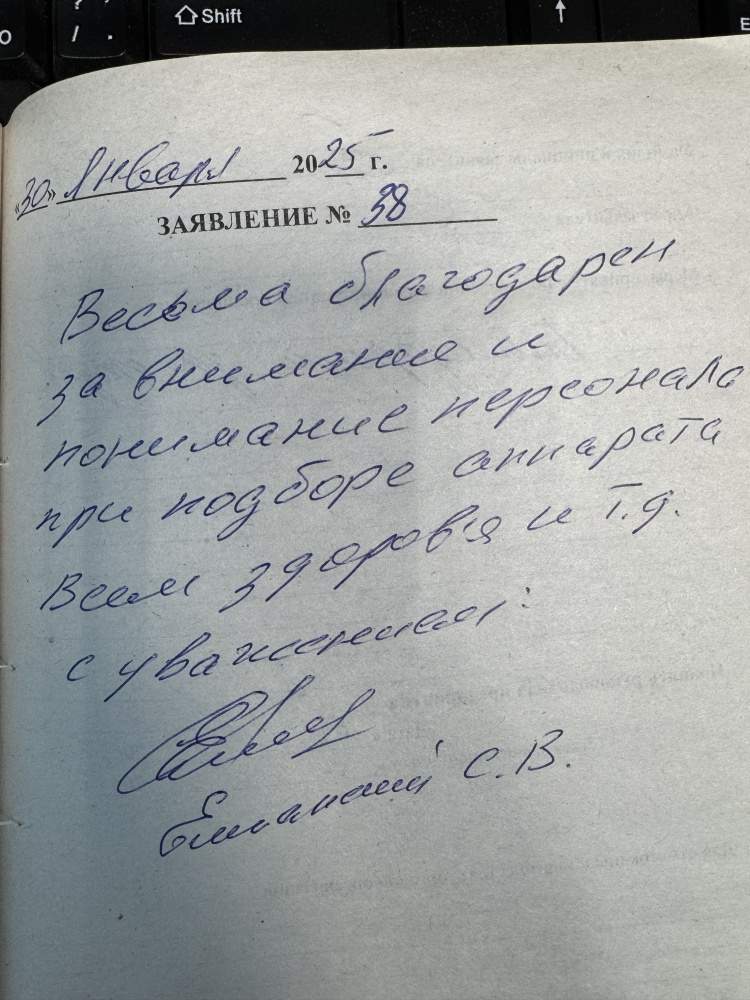 Shift
«30» января 2025 г.
ЗАЯВЛЕНИЕ № 38
Весьма благодарен
за внимание и
понимание персонала
при подборе аппарата
Всем здоровья и т.д.
с уважением:
С.В.